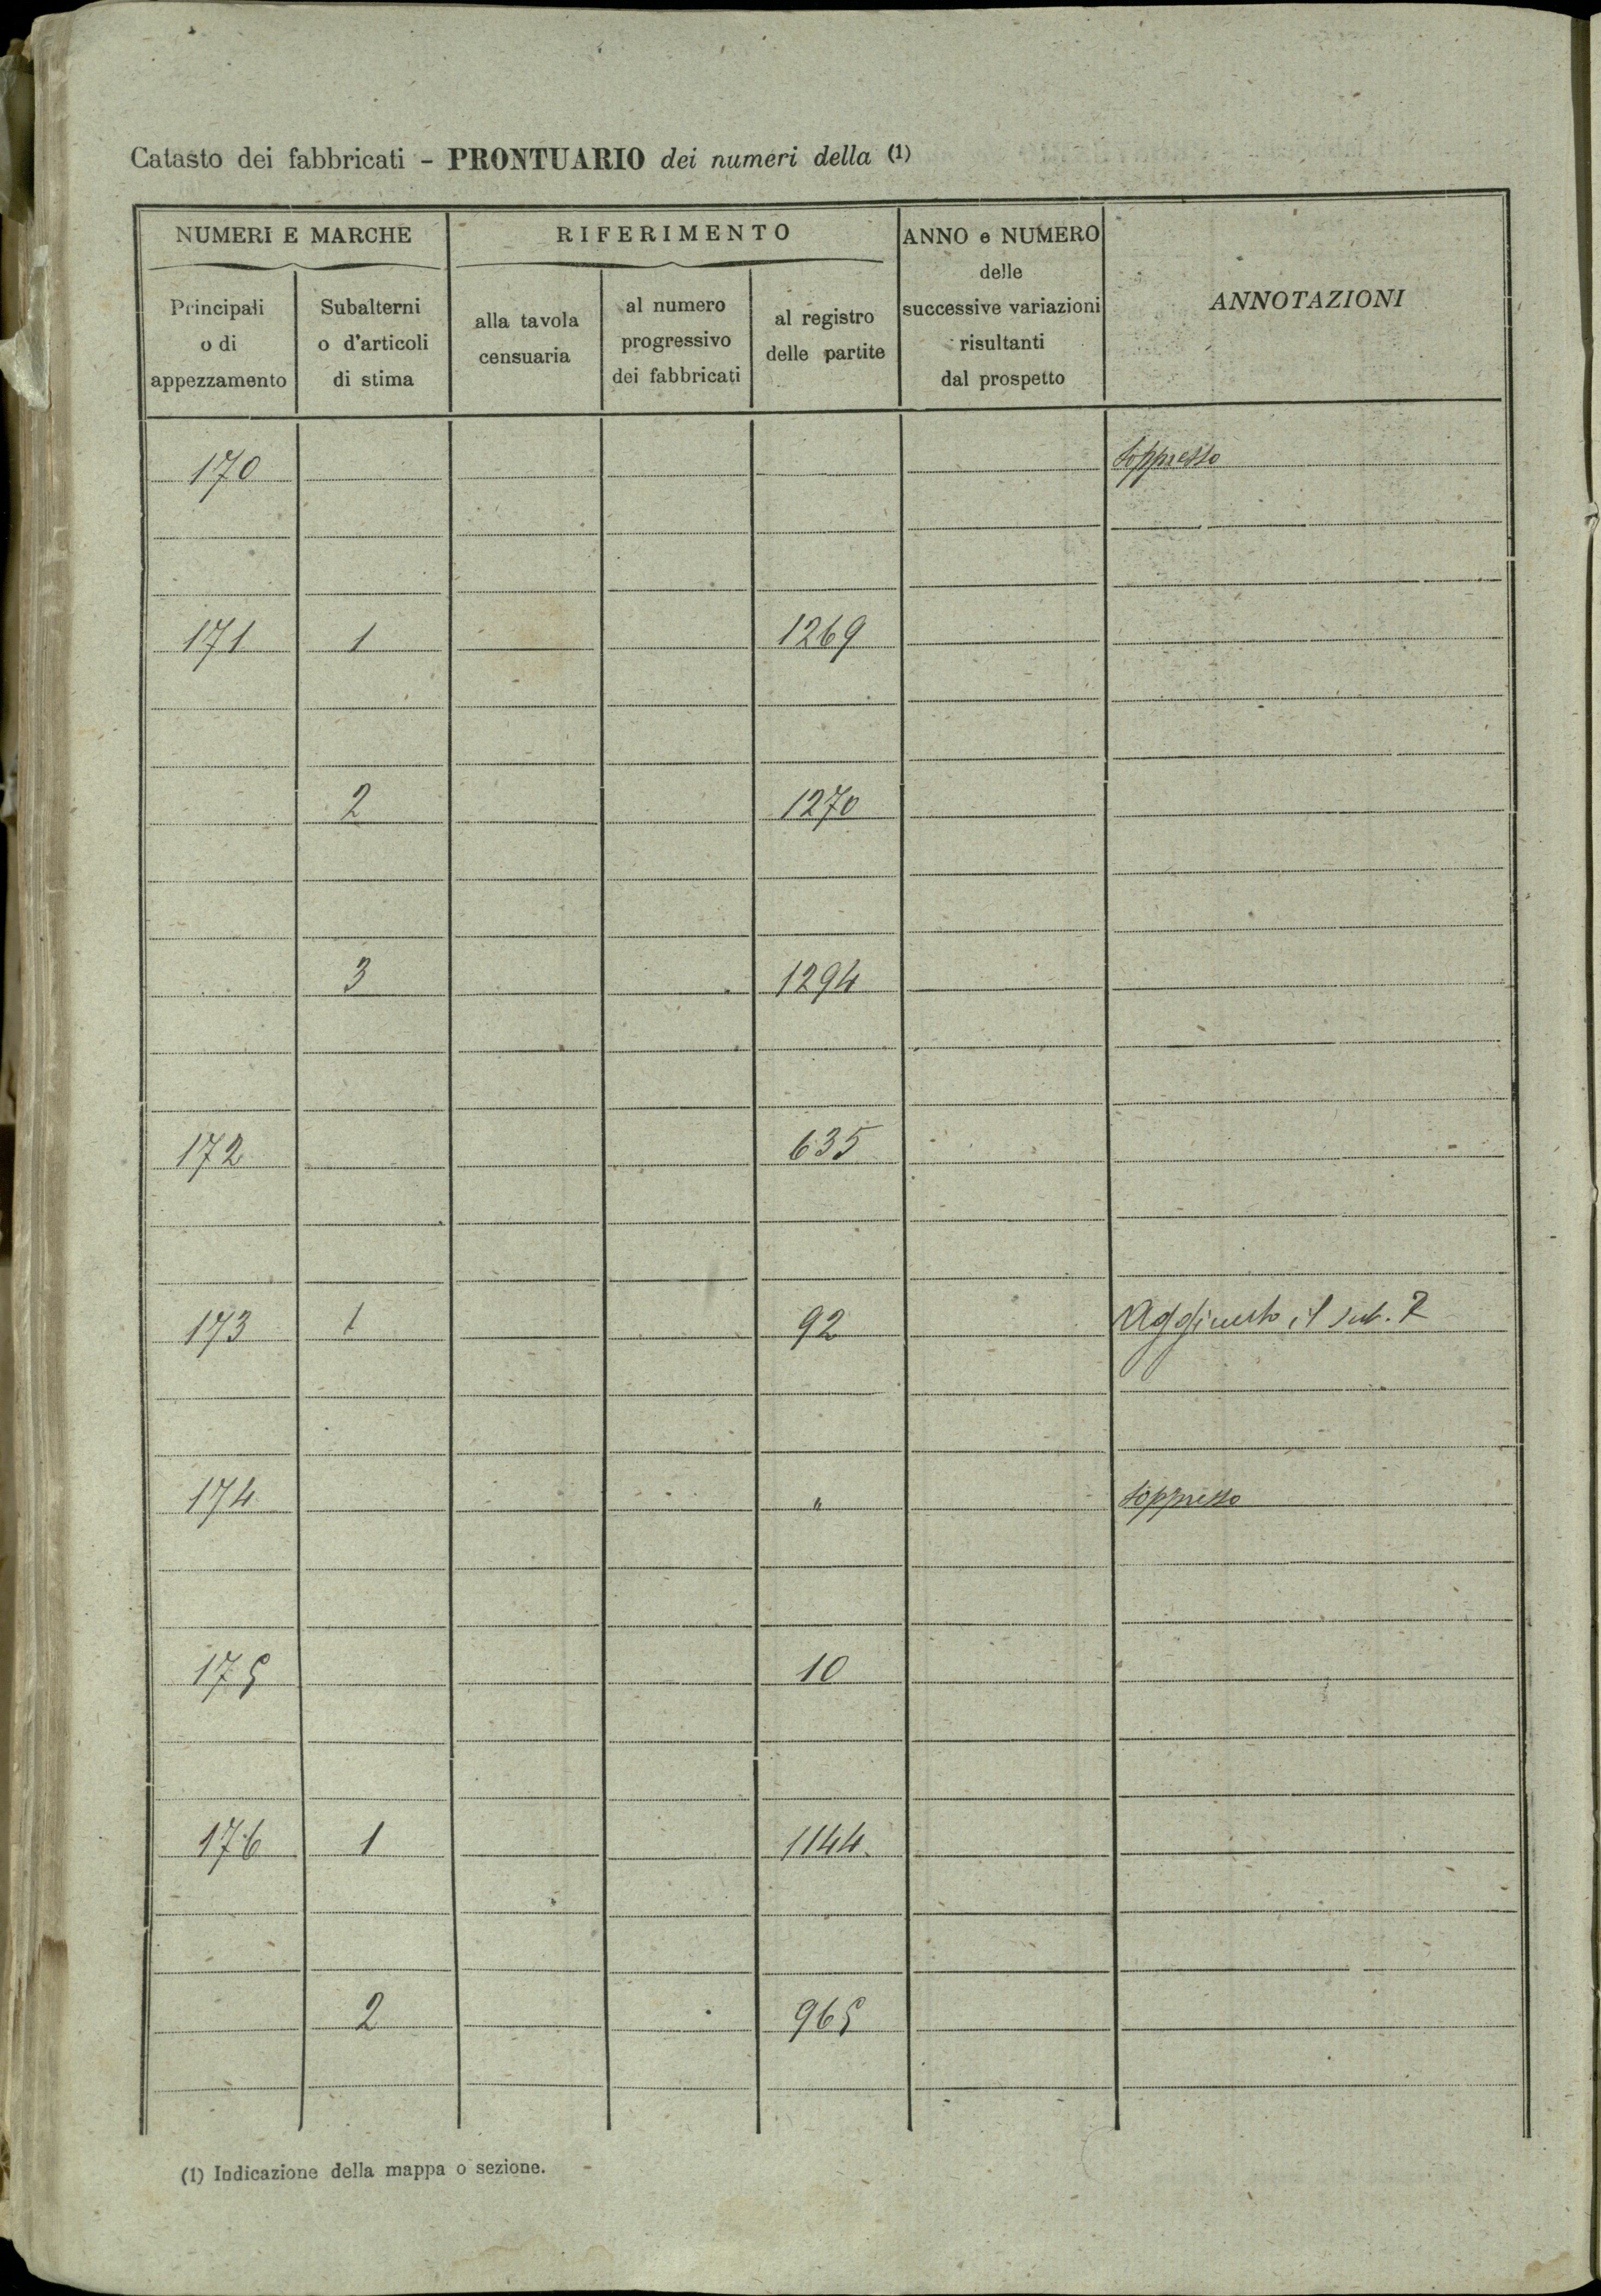 Catasto dei fabbricati - PRONTUARIO dei numeri della (1)
NUMERI E MARCHE
RIFERIMENTO
ANNO e NUMERO
delle
successive variazioni
risultanti
dal prospetto
ANNOTAZIONI
Principali
o di
appezzamento
Subalterni
o d'articoli
di stima
alla tavola
censuaria
al numero
progressivo
dei fabbricati
al registro
delle partite
170 soppresso
171 1 1269
2 1270
3 1294
172 635
173 1 92 Aggiunto il sub. 2
174 " soppresso
175 10
176 1 1144
2 965
(1) Indicazione della mappa o sezione.